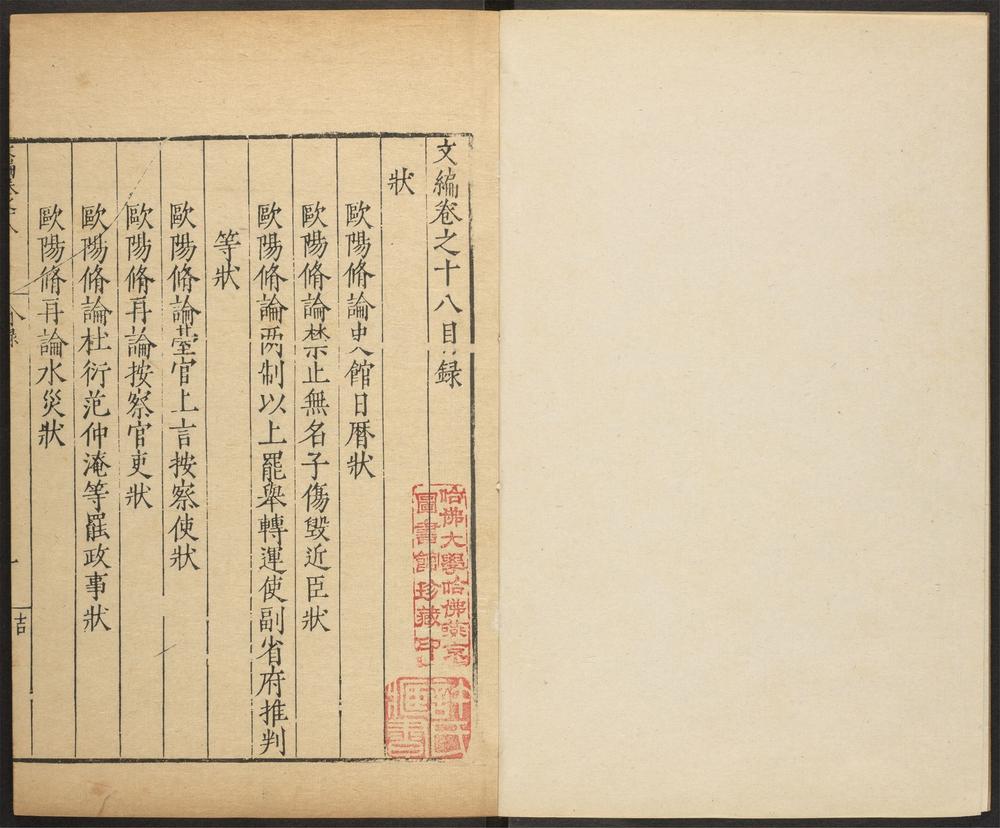 文編卷之十八目録
狀
歐陽脩論史館日曆狀
歐陽脩論禁止無名子傷毀近臣狀
歐陽脩論兩制以上罷舉轉運使副省府推判
等狀
歐陽脩論臺官上言按察使狀
歐陽脩再論按察官吏狀
歐陽脩論杜衍范仲淹等罷政事狀
歐陽脩再論水災狀
吉
哈佛大學哈佛燕京
圖書館珍藏印